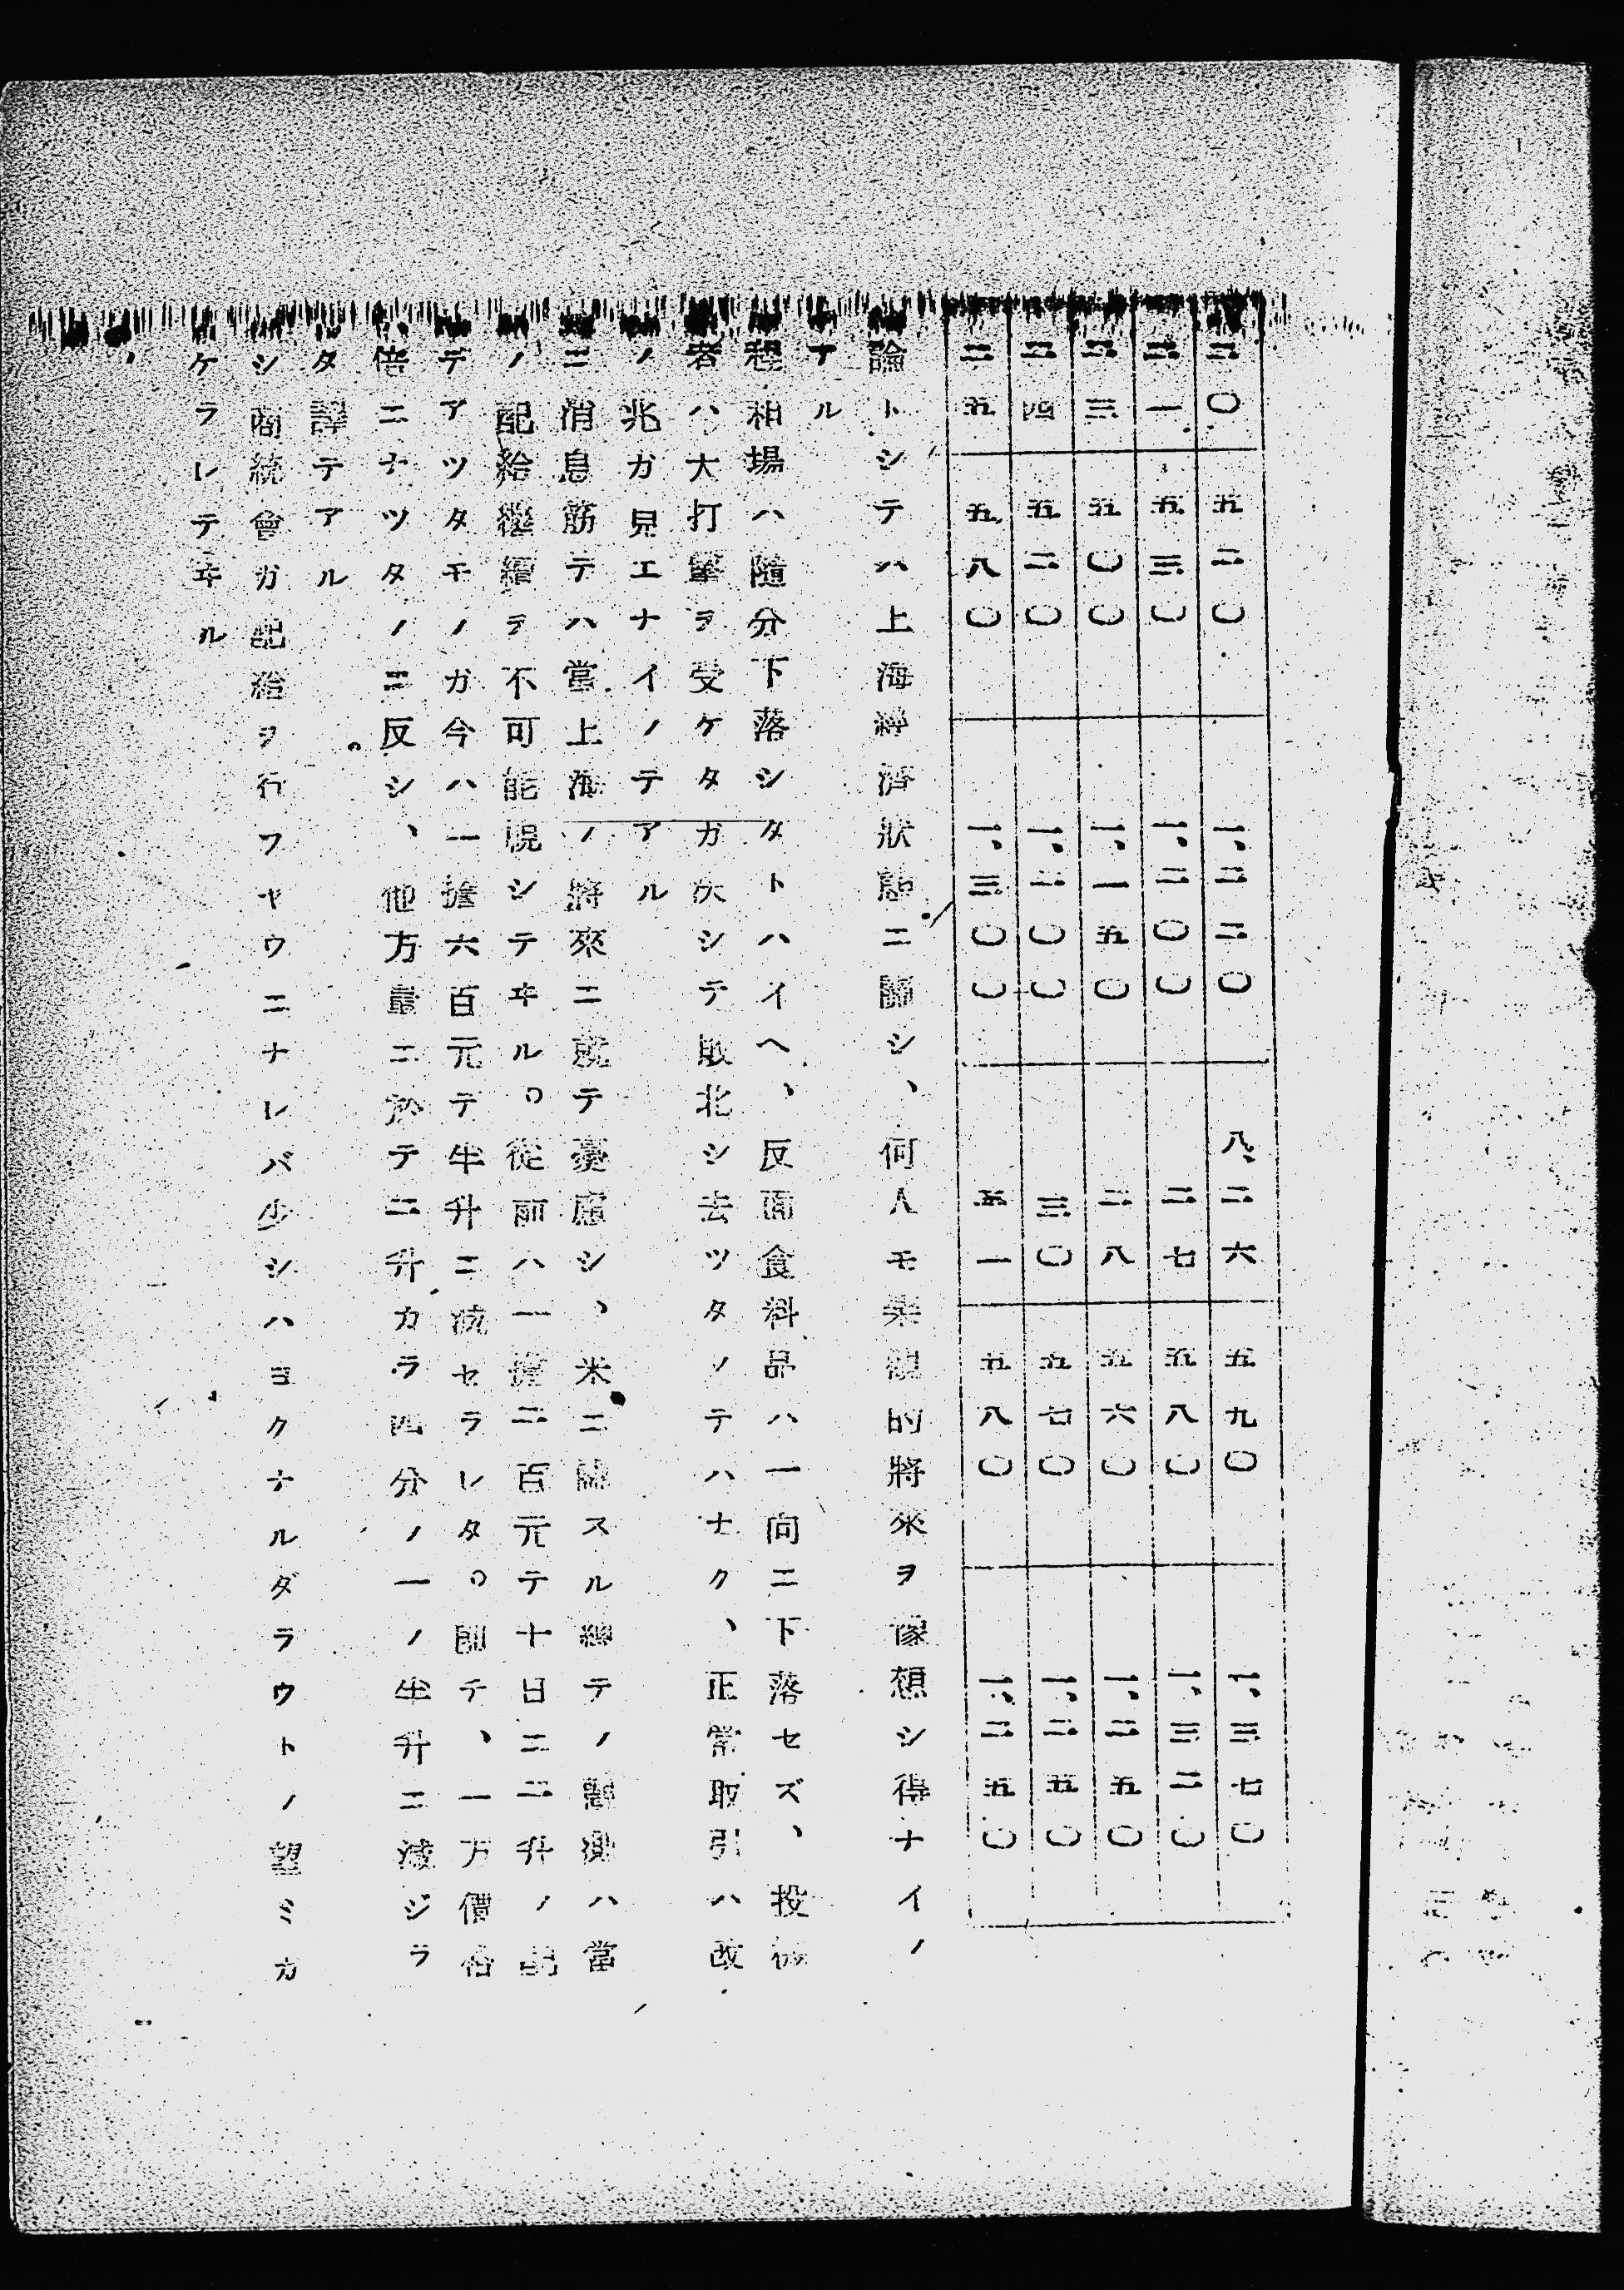 二〇 五二〇 一、二二〇 八、二六 五九〇 一、三七〇
二一 五三〇 一、二〇〇 二七 五八〇 一、三二〇
二三 五〇〇 一、一五〇 二八 五六〇 一、二五〇
二四 五二〇 一、二〇〇 三〇 五七〇 一、二五〇
二五 五八〇 一、三〇〇 五八〇 一、二五〇
論トシテハ上海經濟狀態ニ關シ、何人モ樂觀的將來ヲ豫想シ得ナイノ
アル
程相場ハ隨分下落シタトハイヘ、反面食料品ハ一向ニ下落セズ、投機
者ハ大打擊ヲ受ケタガ決シテ敗北シ去ツタノテハナク、正常取引ハ改
ノ兆ガ見エナイノテアル
ニ消息筋テハ當上海ノ將來ニ就テ憂慮シ、米ニ關スル總テノ觀測ハ當
ノ配給繼續ヲ不可能視シテヰル。從前ハ一擔二百元テ十日ニ二升ノ配
テアツタモノガ今ハ一擔六百元テ半升ニ減セラレタ。卽チ、一方價格
倍ニナツタノニ反シ、他方量ニ於テ二升カラ四分ノ一ノ半升ニ減ジラ
タ譯テアル
シ商統會ガ配給ヲ行フヤウニナレバ少シハヨクナルダラウトノ望ミカ
ケラレテヰル